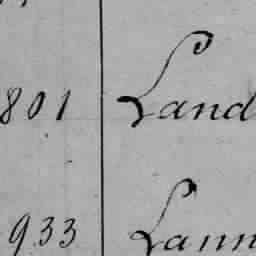 801 Land
933 Lann